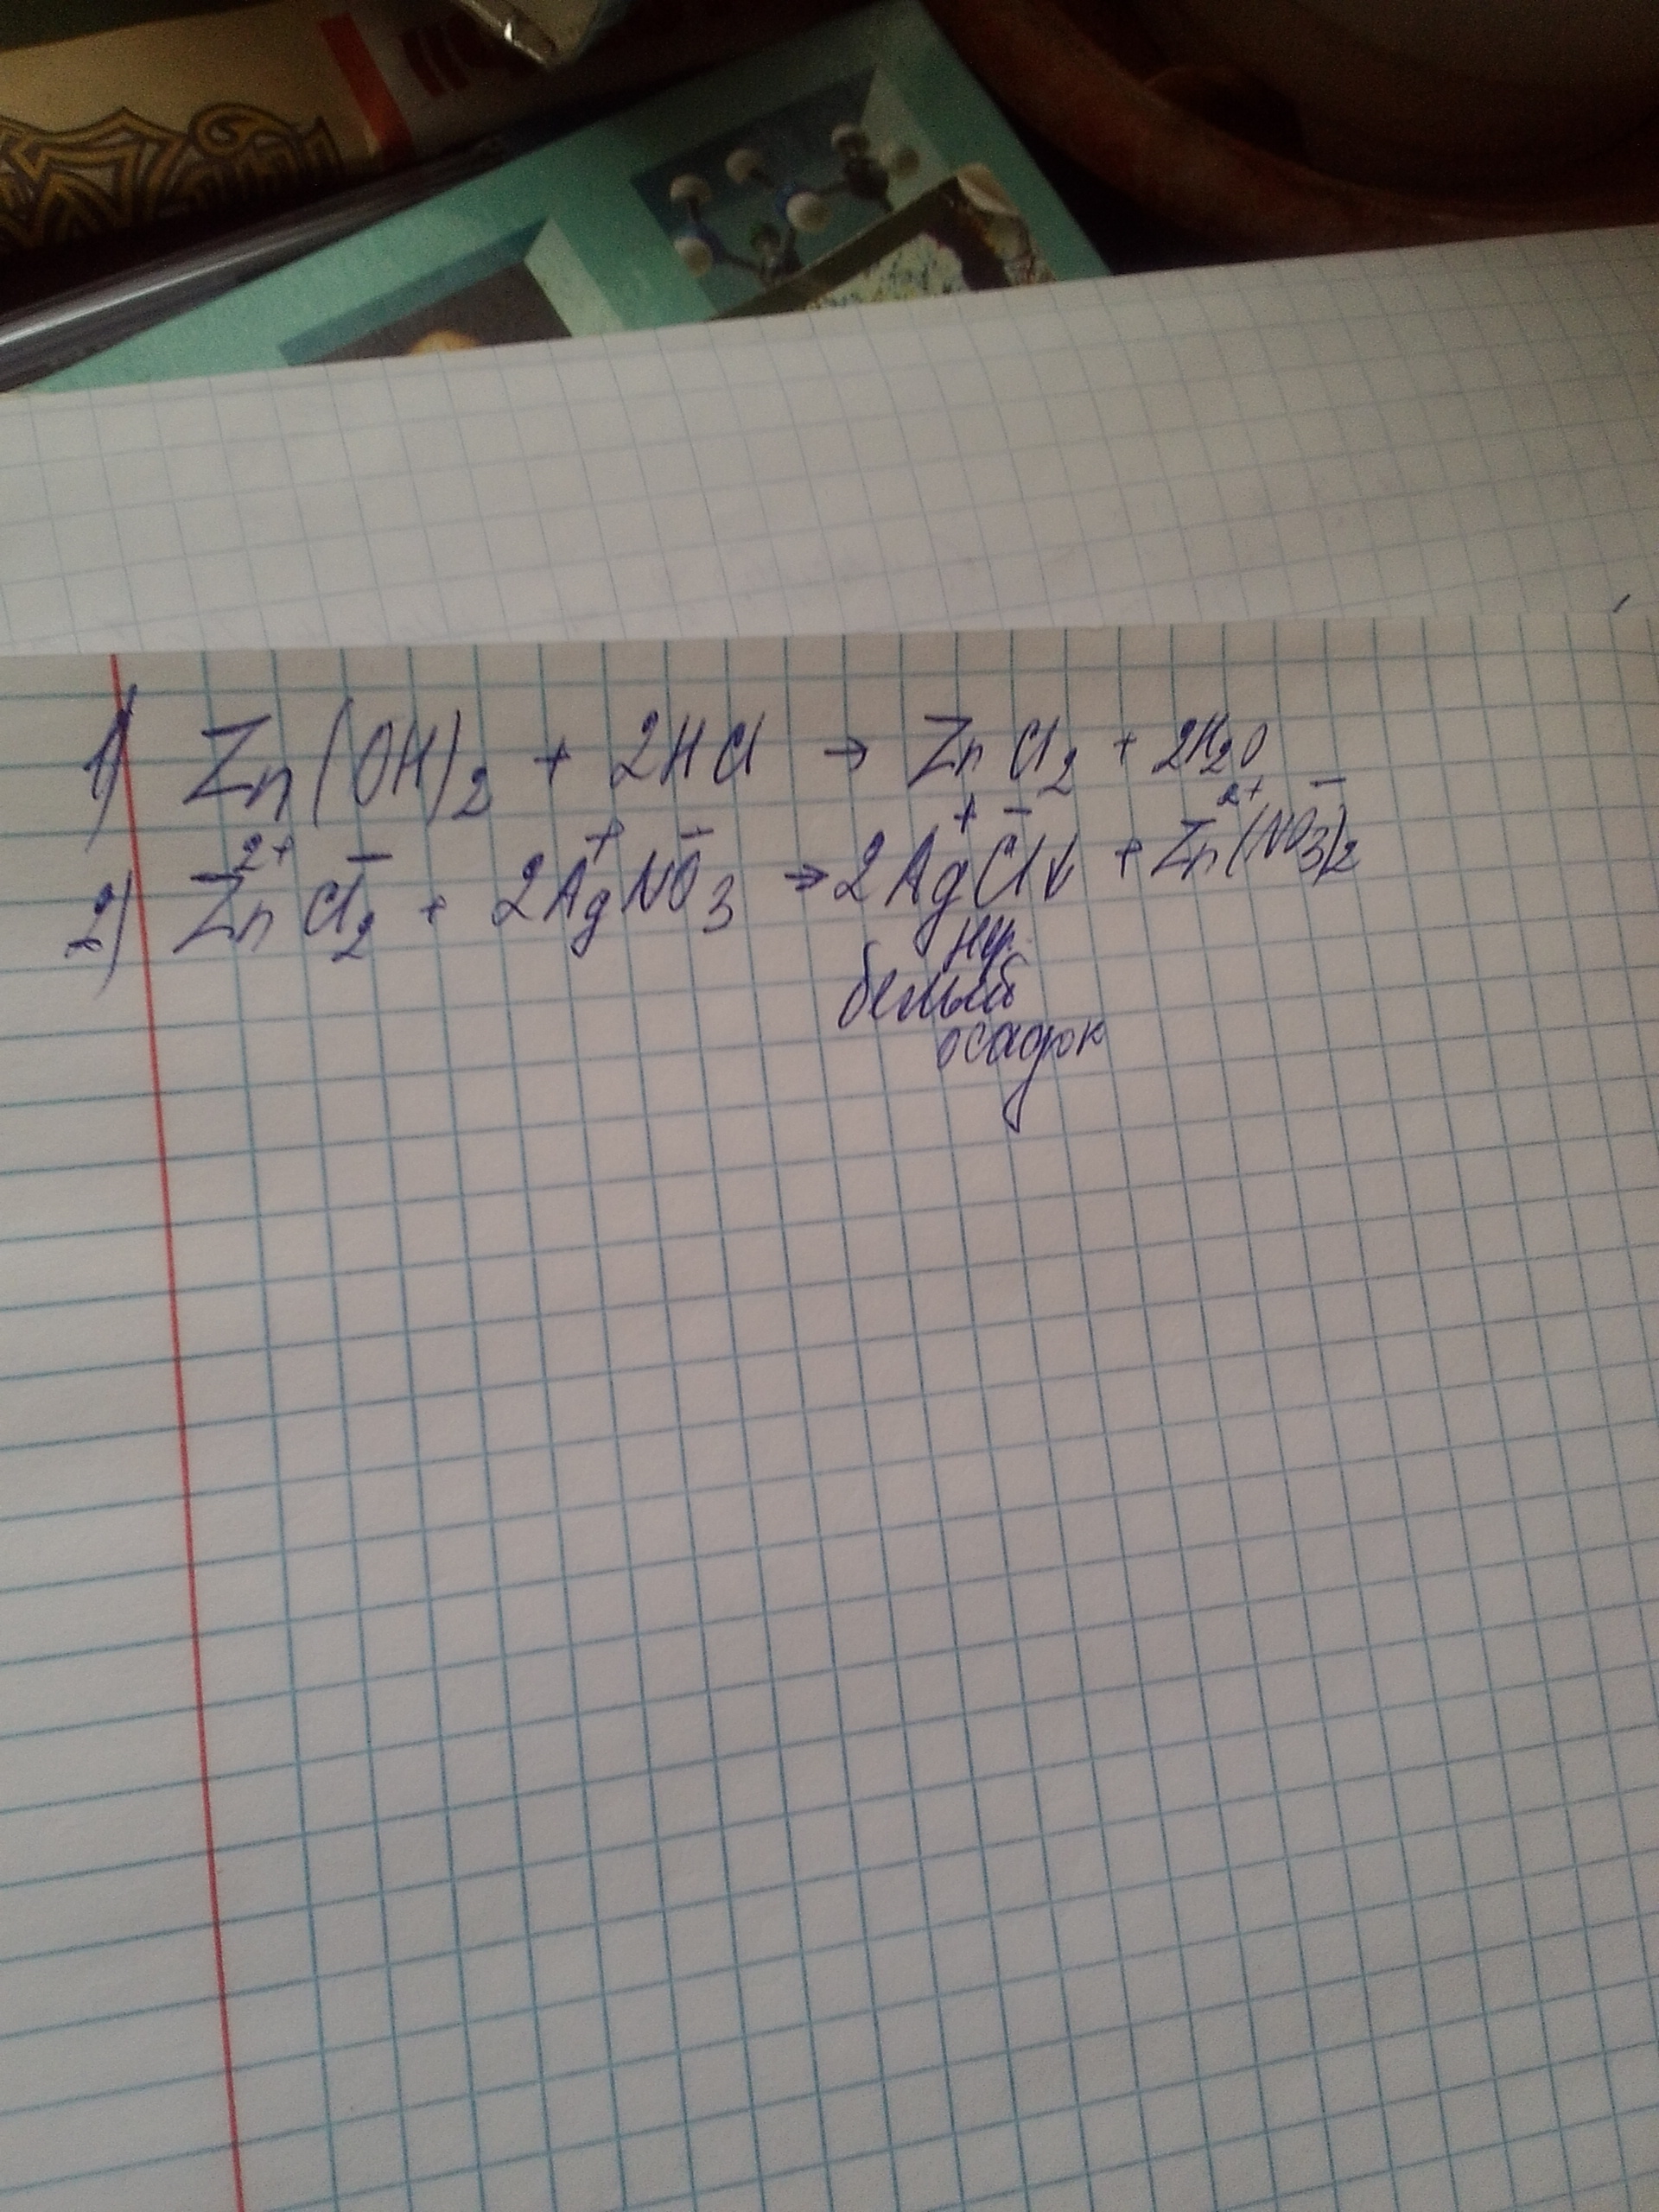 1) Zn(OH)₂ + 2HCl → ZnCl₂ + 2H₂O
2) Zn²⁺Cl⁻₂ + 2Ag⁺NO₃⁻ → 2Ag⁺Cl⁻↓ + Zn²⁺(NO₃)⁻₂
белый
осадок